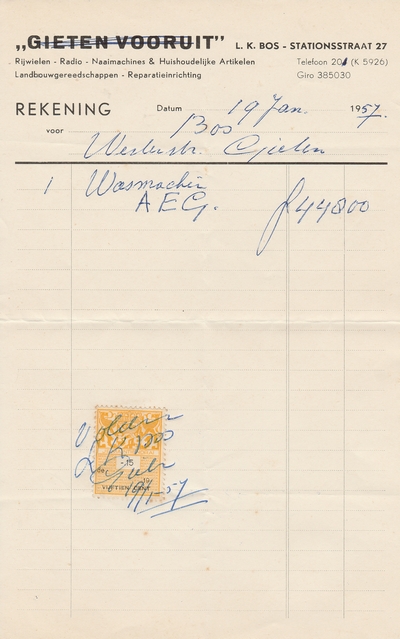 „GIETEN VOORUIT” L. K. BOS - STATIONSSTRAAT 27
Rijwielen - Radio - Naaimachines & Huishoudelijke Artikelen Telefoon 201 (K 5926)
Landbouwgereedschappen - Reparatieinrichting Giro 385030
REKENING Datum 19 Jan. 1957.
voor Bos
Westerstr. Gieten
1 Wasmachin
A E G. f 448 00
Voldaan
15
19/1-57
VIJFTIEN CENT